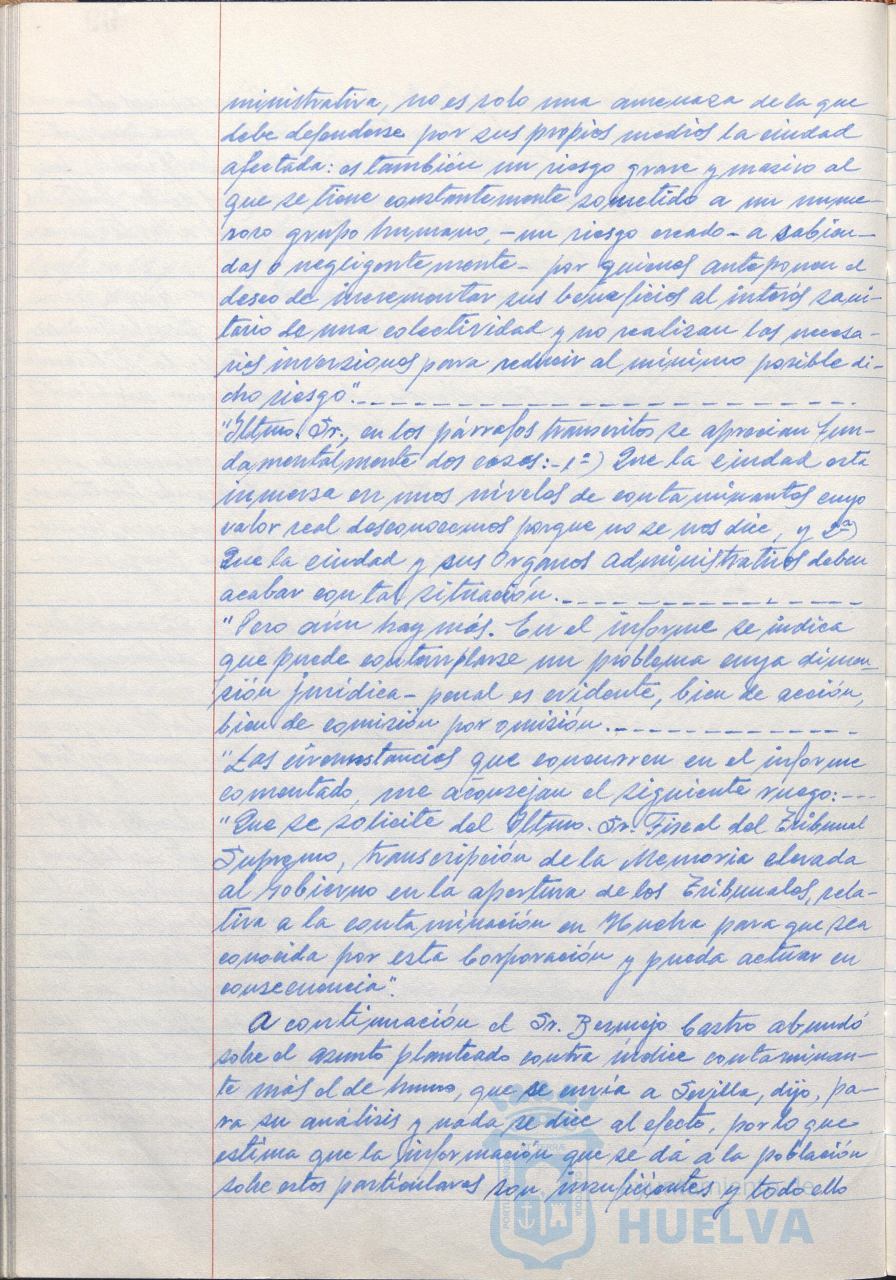 ministrativa, no es solo una amenaza de la que
debe defenderse por sus propios medios la ciudad
afectada: es también un riesgo grave y masivo al
que se tiene constantemente sometido a un nume-
roso grupo humano, - un riesgo creado - a sabien-
das o negligentemente - por quienes anteponen el
deseo de incrementar sus beneficios al interés sani-
tario de una colectividad y no realizan las necesa-
rias inversiones para reducir al mínimo posible di-
cho riesgo".
"Iltmo. Sr., en los párrafos transcritos se aprecian fun-
damentalmente dos cosas: - 1ª) Que la ciudad está
inmersa en unos niveles de contaminantes cuyo
valor real desconocemos porque no se nos dice, y 2ª)
Que la ciudad y sus Órganos administrativos deben
acabar con tal situación.
"Pero aún hay más. En el informe se indica
que puede contemplarse un problema cuya dimen-
sión jurídica - penal es evidente, bien de acción,
bien de comisión por omisión.
"Las circunstancias que concurren en el informe
comentado, me aconsejan el siguiente ruego: ---
"Que se solicite del Iltmo. Sr. Fiscal del Tribunal
Supremo, transcripción de la Memoria elevada
al Gobierno en la apertura de los Tribunales, rela-
tiva a la contaminación en Huelva para que sea
conocida por esta Corporación y pueda actuar en
consecuencia".
A continuación el Sr. Bermejo Castro abundó
sobre el asunto planteado contra índice contaminan-
te más el de humo, que se envía a Sevilla, dijo, pa-
ra su análisis y nada se dice al efecto, por lo que
estima que la información que se dá a la población
sobre estos particulares son insuficientes y todo ello
Ayuntamiento de
HUELVA